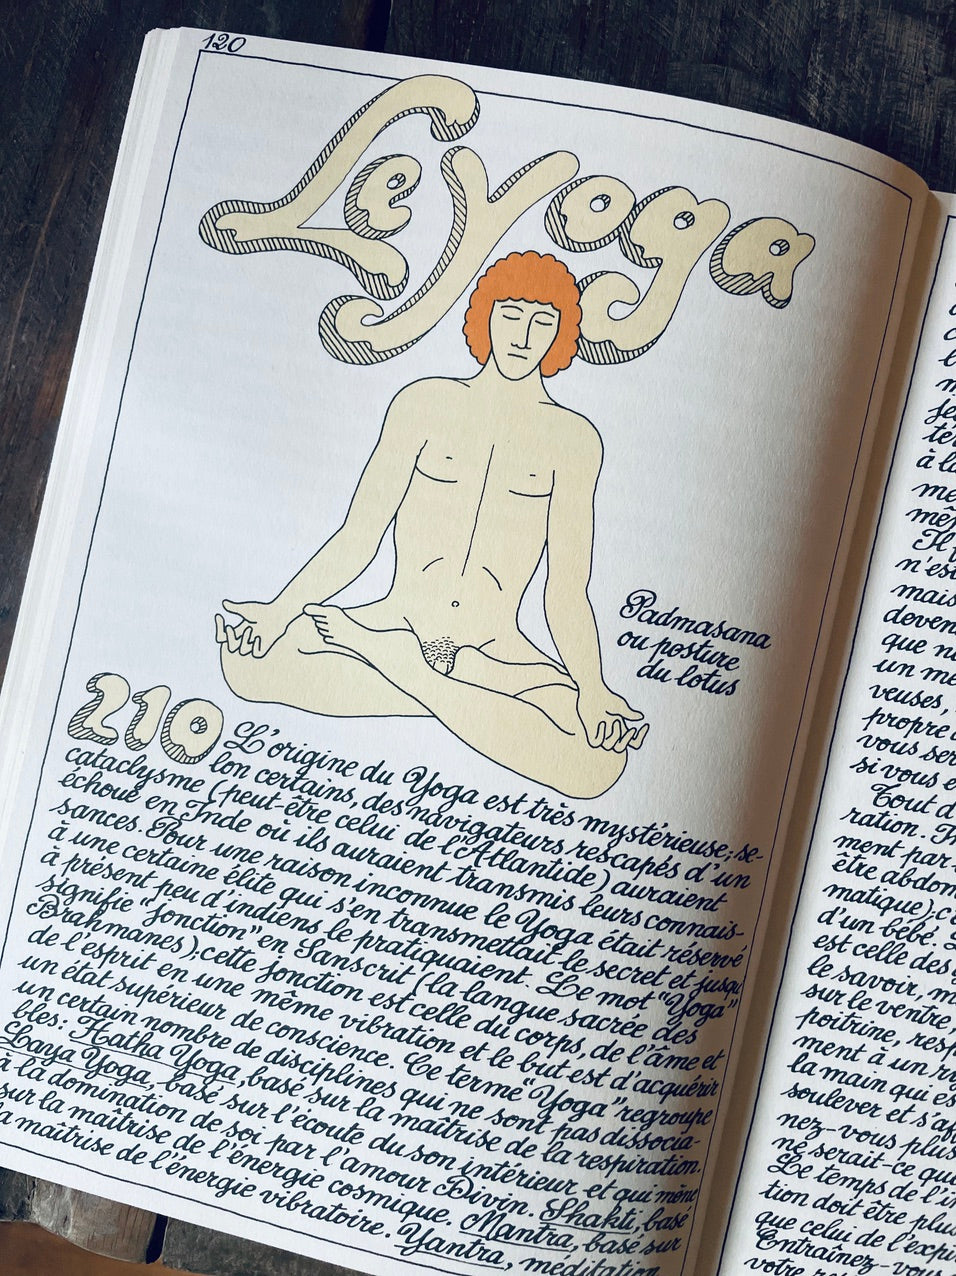 120
Le Yoga
Padmasana
ou posture
du lotus
210
L'origine du Yoga est très mystérieuse; se-
lon certains, des navigateurs rescapés d'un
cataclysme (peut-être celui de l'Atlantide) auraient
échoué en Inde où ils auraient transmis leurs connais-
sances. Pour une raison inconnue le Yoga était réservé
à une certaine élite qui s'en transmettait le secret et jusqu'
à présent peu d'indiens le pratiquaient. Le mot "Yoga"
signifie "jonction" en Sanscrit (la langue sacrée des
Brahmanes); cette jonction est celle du corps, de l'âme et
de l'esprit en une même vibration et le but est d'acquérir
un état supérieur de conscience. Ce terme "Yoga" regroupe
un certain nombre de disciplines qui ne sont pas dissocia-
bles: Hatha Yoga, basé sur la maîtrise de la respiration.
Laya Yoga, basé sur l'écoute du son intérieur et qui mène
à la domination de soi par l'amour Divin. Shakti, basé
sur la maîtrise de l'énergie cosmique. Mantra, basé sur
la maîtrise de l'énergie vibratoire. Yantra, méditation
à la
n'est
mais
deven
que n
un mé
veuses,
propre
vous ser
si vous e
Tout d
ration.
ment par
être abdom
matique); c
d'un bébé.
est celle des
le savoir, m
sur le ventre,
poitrine, resp
ment à un ry
la main qui es
soulever et s'af
nez-vous plus
ne serait-ce que
Le temps de l'i
tion doit être plu
que celui de l'expi
Entraînez-vous
votre